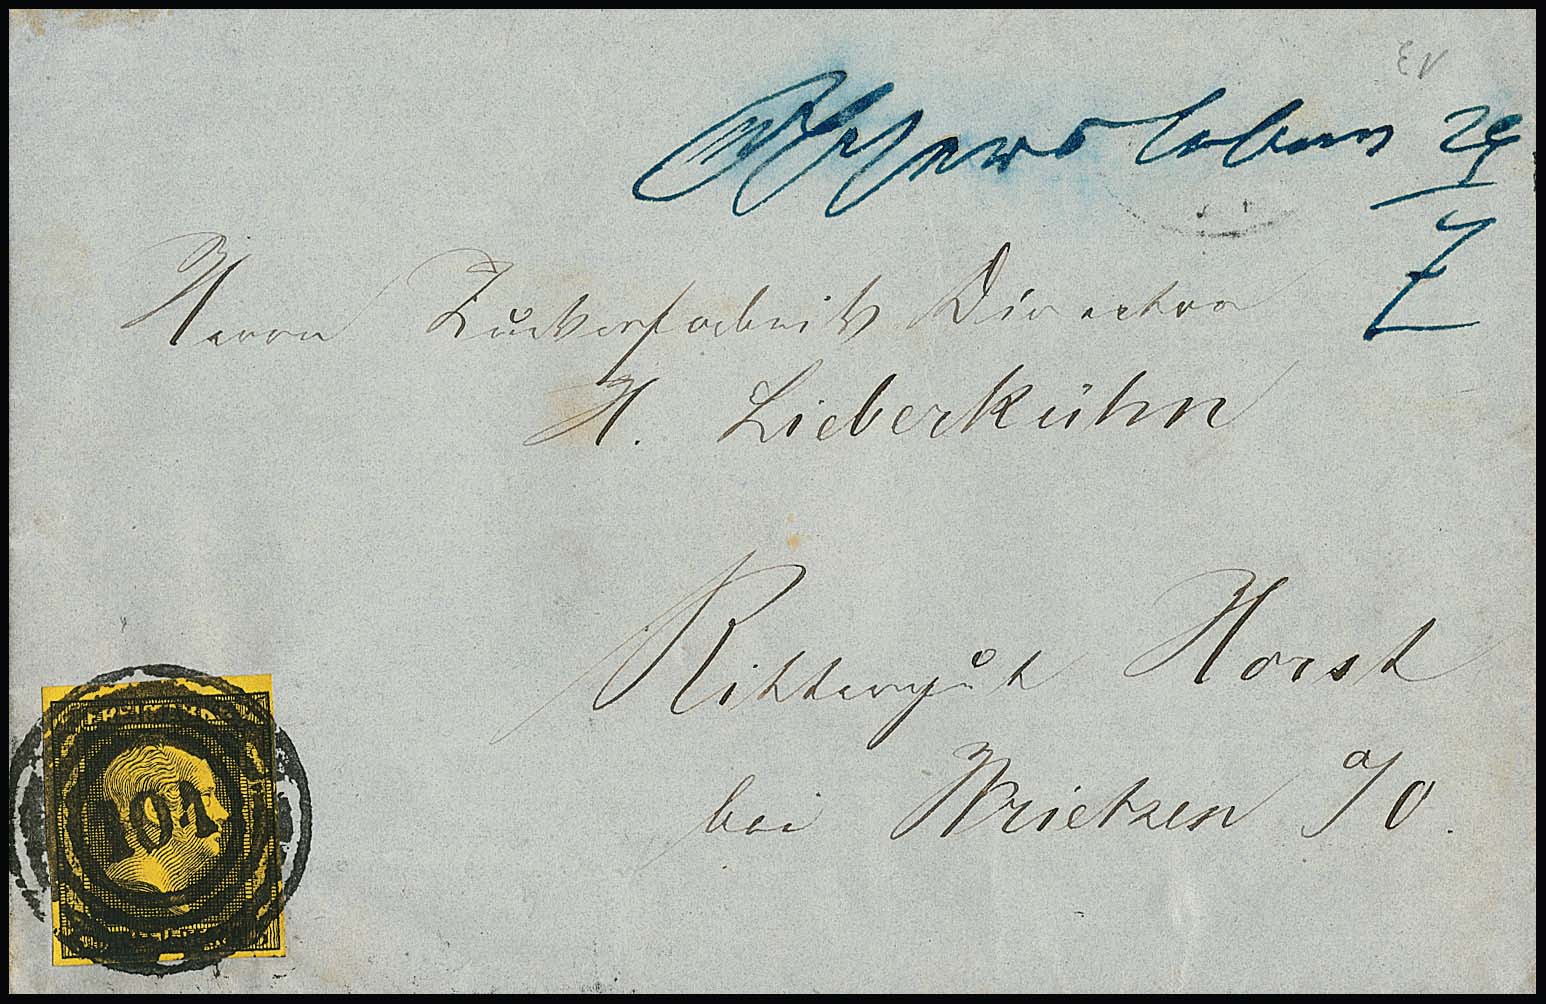 Herrn Zuckerfabriks Director
H. Lieberkühn
Rittergut Horst
bei Wrietzen a/O.
FREIMARKE
101